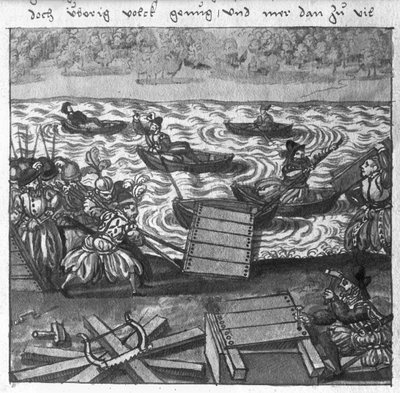 doch vberig volck genug, vnd mer dan zu vil